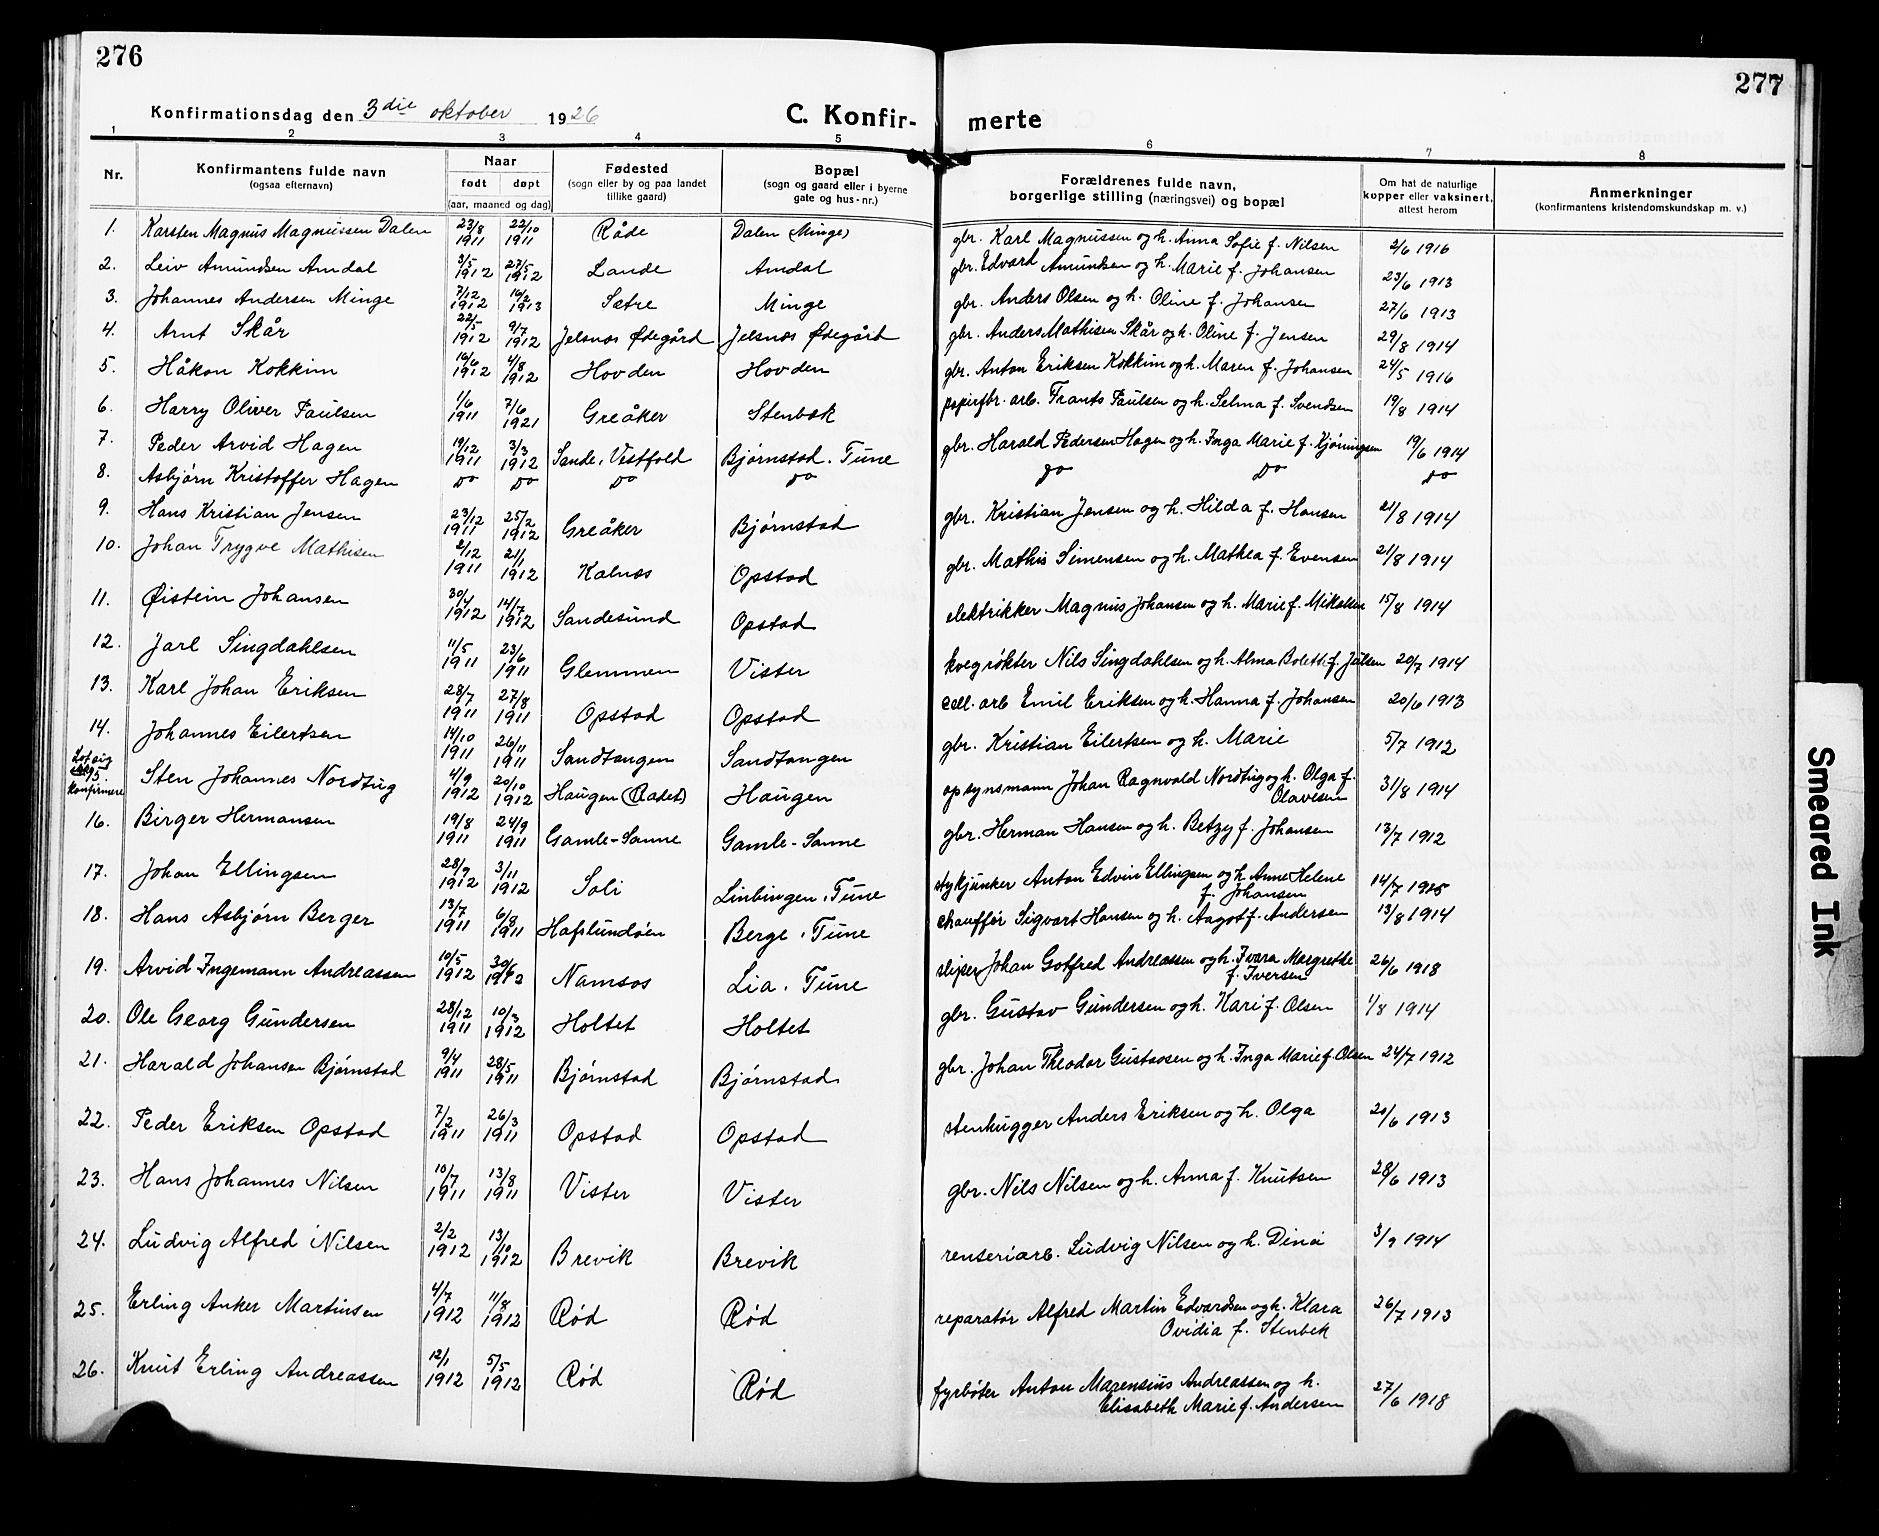 276
277
Konfirmationsdag den 3die oktober 1926
C. Konfir- merte
1 2 3 4 5 6 7 8
Nr. Konfirmantens fulde navn (ogsaa efternavn) Naar født døpt (aar, maaned og dag) Fødested (sogn eller by og paa landet tillike gaard) Bopæl (sogn og gaard eller i byerne gate og hus-nr.) Forældrenes fulde navn, borgerlige stilling (næringsvei) og bopæl Om hat de naturlige kopper eller vaksinert, attest herom Anmerkninger (konfirmantens kristendomskundskap m. v.)
1. Karsten Magnus Magnussen Dalen 23/8 1911 22/10 1911 Råde Dalen (Minge) gbr. Karl Magnussen og h. Anna Sofie f. Nilsen 2/6 1916
2. Leiv Amundsen Amdal 3/5 1912 27/5 1912 Lande Amdal gbr. Edvard Amundsen og h. Marie f. Johansen 23/6 1913
3. Johannes Andersen Minge 7/12 1912 16/2 1913 Sætre Minge gbr. Anders Olsen og h. Oline f. Johansen 27/6 1913
4. Arnt Skår 22/5 1912 9/7 1912 Jelsnæs Ødegård Jelsnæs Ødegård gbr. Anders Mathisen Skår og h. Oline f. Jensen 29/8 1914
5. Håkon Kokkim 16/6 1912 4/8 1912 Hovden Hovden gbr. Anton Eriksen Kokkim og h. Maren f. Johansen 24/5 1916
6. Harry Oliver Paulsen 1/6 1911 7/6 1921 Greåker Stenbæk papirfbr. arb. Frants Paulsen og h. Selma f. Svendsen 19/8 1914
7. Peder Arvid Hagen 19/12 1911 3/3 1912 Sande, Vestfold Bjørnstad, Tune gbr. Harald Pedersen Hagen og h. Inga Marie f. Kjøningsen 19/6 1914
8. Asbjørn Kristoffer Hagen do do do do do do do
9. Hans Kristian Jensen 23/12 1911 25/2 1912 Greåker Bjørnstad gbr. Kristian Jensen og h. Hilda f. Hansen 21/8 1914
10. Johan Trygve Mathisen 2/12 1911 21/1 1912 Kalnæs Opstad gbr. Mathis Simensen og h. Mathea f. Evensen 21/8 1914
11. Øistein Johansen 30/4 1912 14/7 1912 Sandesund Opstad elektrikker Magnus Johansen og h. Marie f. Mikalsen 15/8 1914
12. Jarl Singdahlsen 11/5 1911 23/6 1911 Glemmen Vister kvegrøkter Nils Singdahlsen og h. Alma Bolett f. Julsen 20/7 1914
13. Karl Johan Eriksen 28/7 1911 27/8 1911 Opstad Opstad cell. arb Emil Eriksen og h. Hanna f. Johansen 20/6 1913
14. Johannes Eilertsen 14/10 1911 26/11 1911 Sandtangen Sandtangen gbr. Kristian Eilertsen og h. Marie 5/7 1912
Lot sig
15. Sten Johannes Nordtug 4/9 1912 20/10 1912 Haugen (Radet) Haugen opsynsmann Johan Ragnvald Nordtug og h. Olga f. Olavesen 31/8 1914
konfirmere
16. Birger Hermansen 19/8 1911 24/9 1911 Gamle-Sanne Gamle-Sanne gbr. Herman Hansen og h. Betzy f. Johansen 13/7 1912
17. Johan Ellingsen 28/9 1912 3/11 1912 Soli Linbingen, Tune stykjunker Anton Edvin Ellingsen og h. Anne Helene f. Johansen 14/7 1915
18. Hans Asbjørn Berger 13/7 1911 6/8 1911 Hafslundsøen Berge, Tune chauffør Sigvart Hansen og h. Aagot f. Andersen 13/8 1914
19. Arvid Ingemann Andreassen 10/5 1912 30/6 1912 Namsos Lia, Tune sliper Johan Gotfred Andreassen og h. Ivara Margrethe f. Iversen 26/6 1918
20. Ole Georg Gundersen 28/12 1911 10/3 1912 Holtet Holtet gbr. Gustav Gundersen og h. Kari f. Olsen 1/8 1914
21. Harald Johansen Bjørnstad 9/4 1911 28/5 1911 Bjørnstad Bjørnstad gbr. Johan Theodor Gustavsen og h. Inga Marie f. Olsen 24/7 1912
22. Peder Eriksen Opstad 7/2 1911 26/3 1911 Opstad Opstad stenhugger Anders Eriksen og h. Olga 20/6 1913
23. Hans Johannes Nilsen 10/7 1911 13/8 1911 Vister Vister gbr. Nils Nilsen og h. Anna f. Knutsen 28/6 1913
24. Ludvig Alfred Nilsen 2/2 1912 13/10 1912 Brevik Brevik renseriarb. Ludvig Nilsen og h. Dina 3/9 1914
25. Erling Anker Martinsen 4/7 1912 11/8 1912 Rød Rød reparatør Alfred Martin Edvardsen og h. Klara Ovidia f. Stenbek 26/7 1913
26. Knut Erling Andreassen 12/1 1912 5/5 1912 Rød Rød fyrbøter Anton Marensius Andreassen og h. Elisabeth Marie f. Andersen 27/6 1918
Smeared Ink